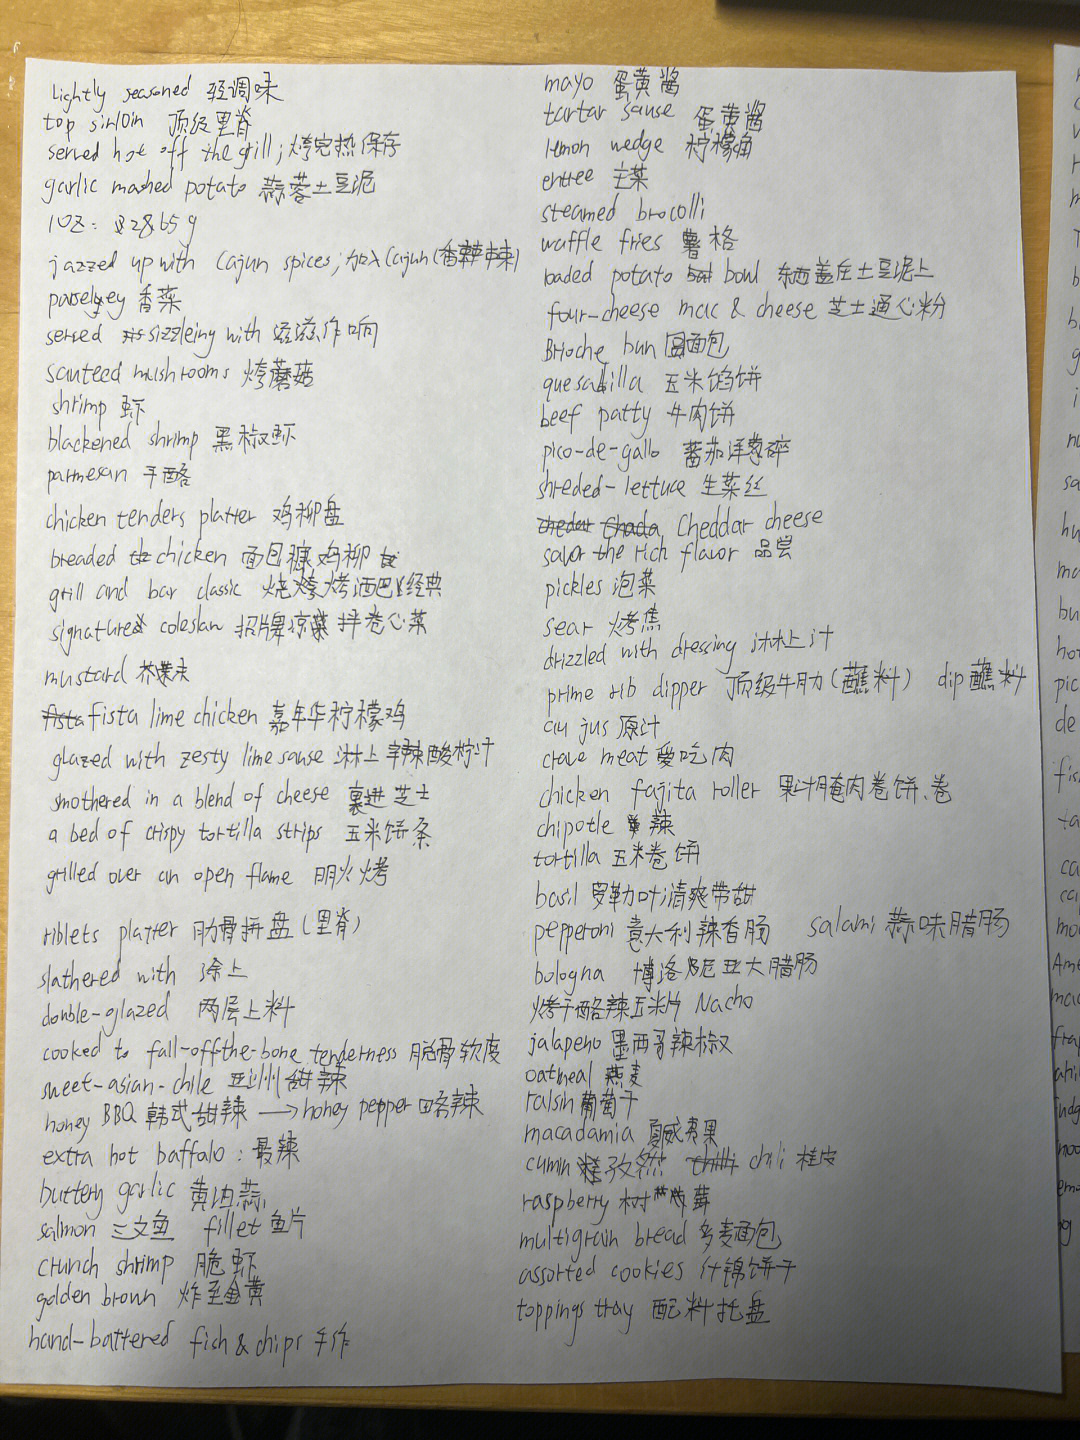 Lightly seasoned 轻调味
top sirloin 顶级里脊
served hot off the grill; 烤完热保存
garlic mashed potato 蒜蓉土豆泥
1oz: 28.65g
jazzed up with Cajun spices; 加入Cajun(香辣
香菜
served sizzleing with 滋滋作响
sauteed mushrooms 烤蘑菇
shrimp 虾
blackened shrimp 黑椒虾
parmesan 干酪
chicken tenders platter 鸡柳盘
breaded chicken 面包糠鸡柳
grill and bar classic 烧烤酒吧经典
signature coleslaw 招牌凉菜 拌卷心菜
mustard 芥末
fista lime chicken 嘉年华柠檬鸡
glazed with zesty lime sause 淋上辣酸柠汁
smothered in a blend of cheese 裹进芝士
a bed of crispy tortilla strips 玉米饼条
grilled over an open flame 明火烤
riblets platter 肋骨拼盘(里脊)
slathered with 涂上
double-glazed 两层上料
cooked to fall-off-the-bone tenderness 脱骨软度
sweet-asian-chile 亚洲甜辣
honey BBQ 韩式甜辣 → honey pepper 略辣
extra hot baffalo: 最辣
buttery garlic 黄油蒜
salmon 三文鱼 fillet 鱼片
crunch shrimp 脆虾
golden brown 炸至金黄
hand-battered fish & chips 手作
mayo 蛋黄酱
tartar sause 蛋黄酱
lemon wedge 柠檬角
entree 主菜
steamed brocolli
waffle fries 薯格
loaded potato bowl 东西盖在土豆泥上
four-cheese mac & cheese 芝士通心粉
Brioche bun 圆面包
quesadilla 玉米馅饼
beef patty 牛肉饼
pico-de-gallo 蕃茄洋葱碎
shreded-lettuce 生菜丝
Cheddar cheese
savor the rich flavor 品尝
pickles 泡菜
sear 烤焦
drizzled with dressing 淋上汁
prime rib dipper 顶级牛肋(蘸料) dip 蘸料
au jus 原汁
crave meat 爱吃肉
chicken fajita roller 果汁腌肉卷饼、卷
chipotle 辣
tortilla 玉米卷饼
basil 罗勒叶;清爽带甜
pepperoni 意大利辣香肠 salami 蒜味腊肠
bologna 博洛尼亚大腊肠
烤干酪辣玉米片 Nacho
jalapeno 墨西哥辣椒
oatmeal 燕麦
raisin 葡萄干
macadamia 夏威夷果
cumin 孜然 chili 桂皮
raspberry 树莓
multigrain bread 多麦面包
assorted cookies 什锦饼干
toppings tray 配料托盘